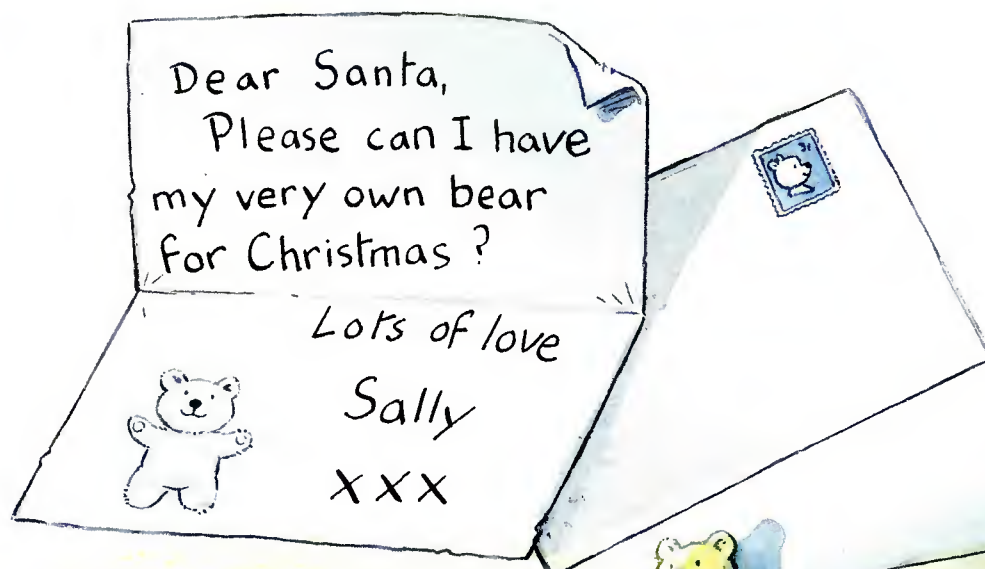 Dear Santa,
Please can I have
my very own bear
for Christmas ?
Lots of love
Sally
xxx